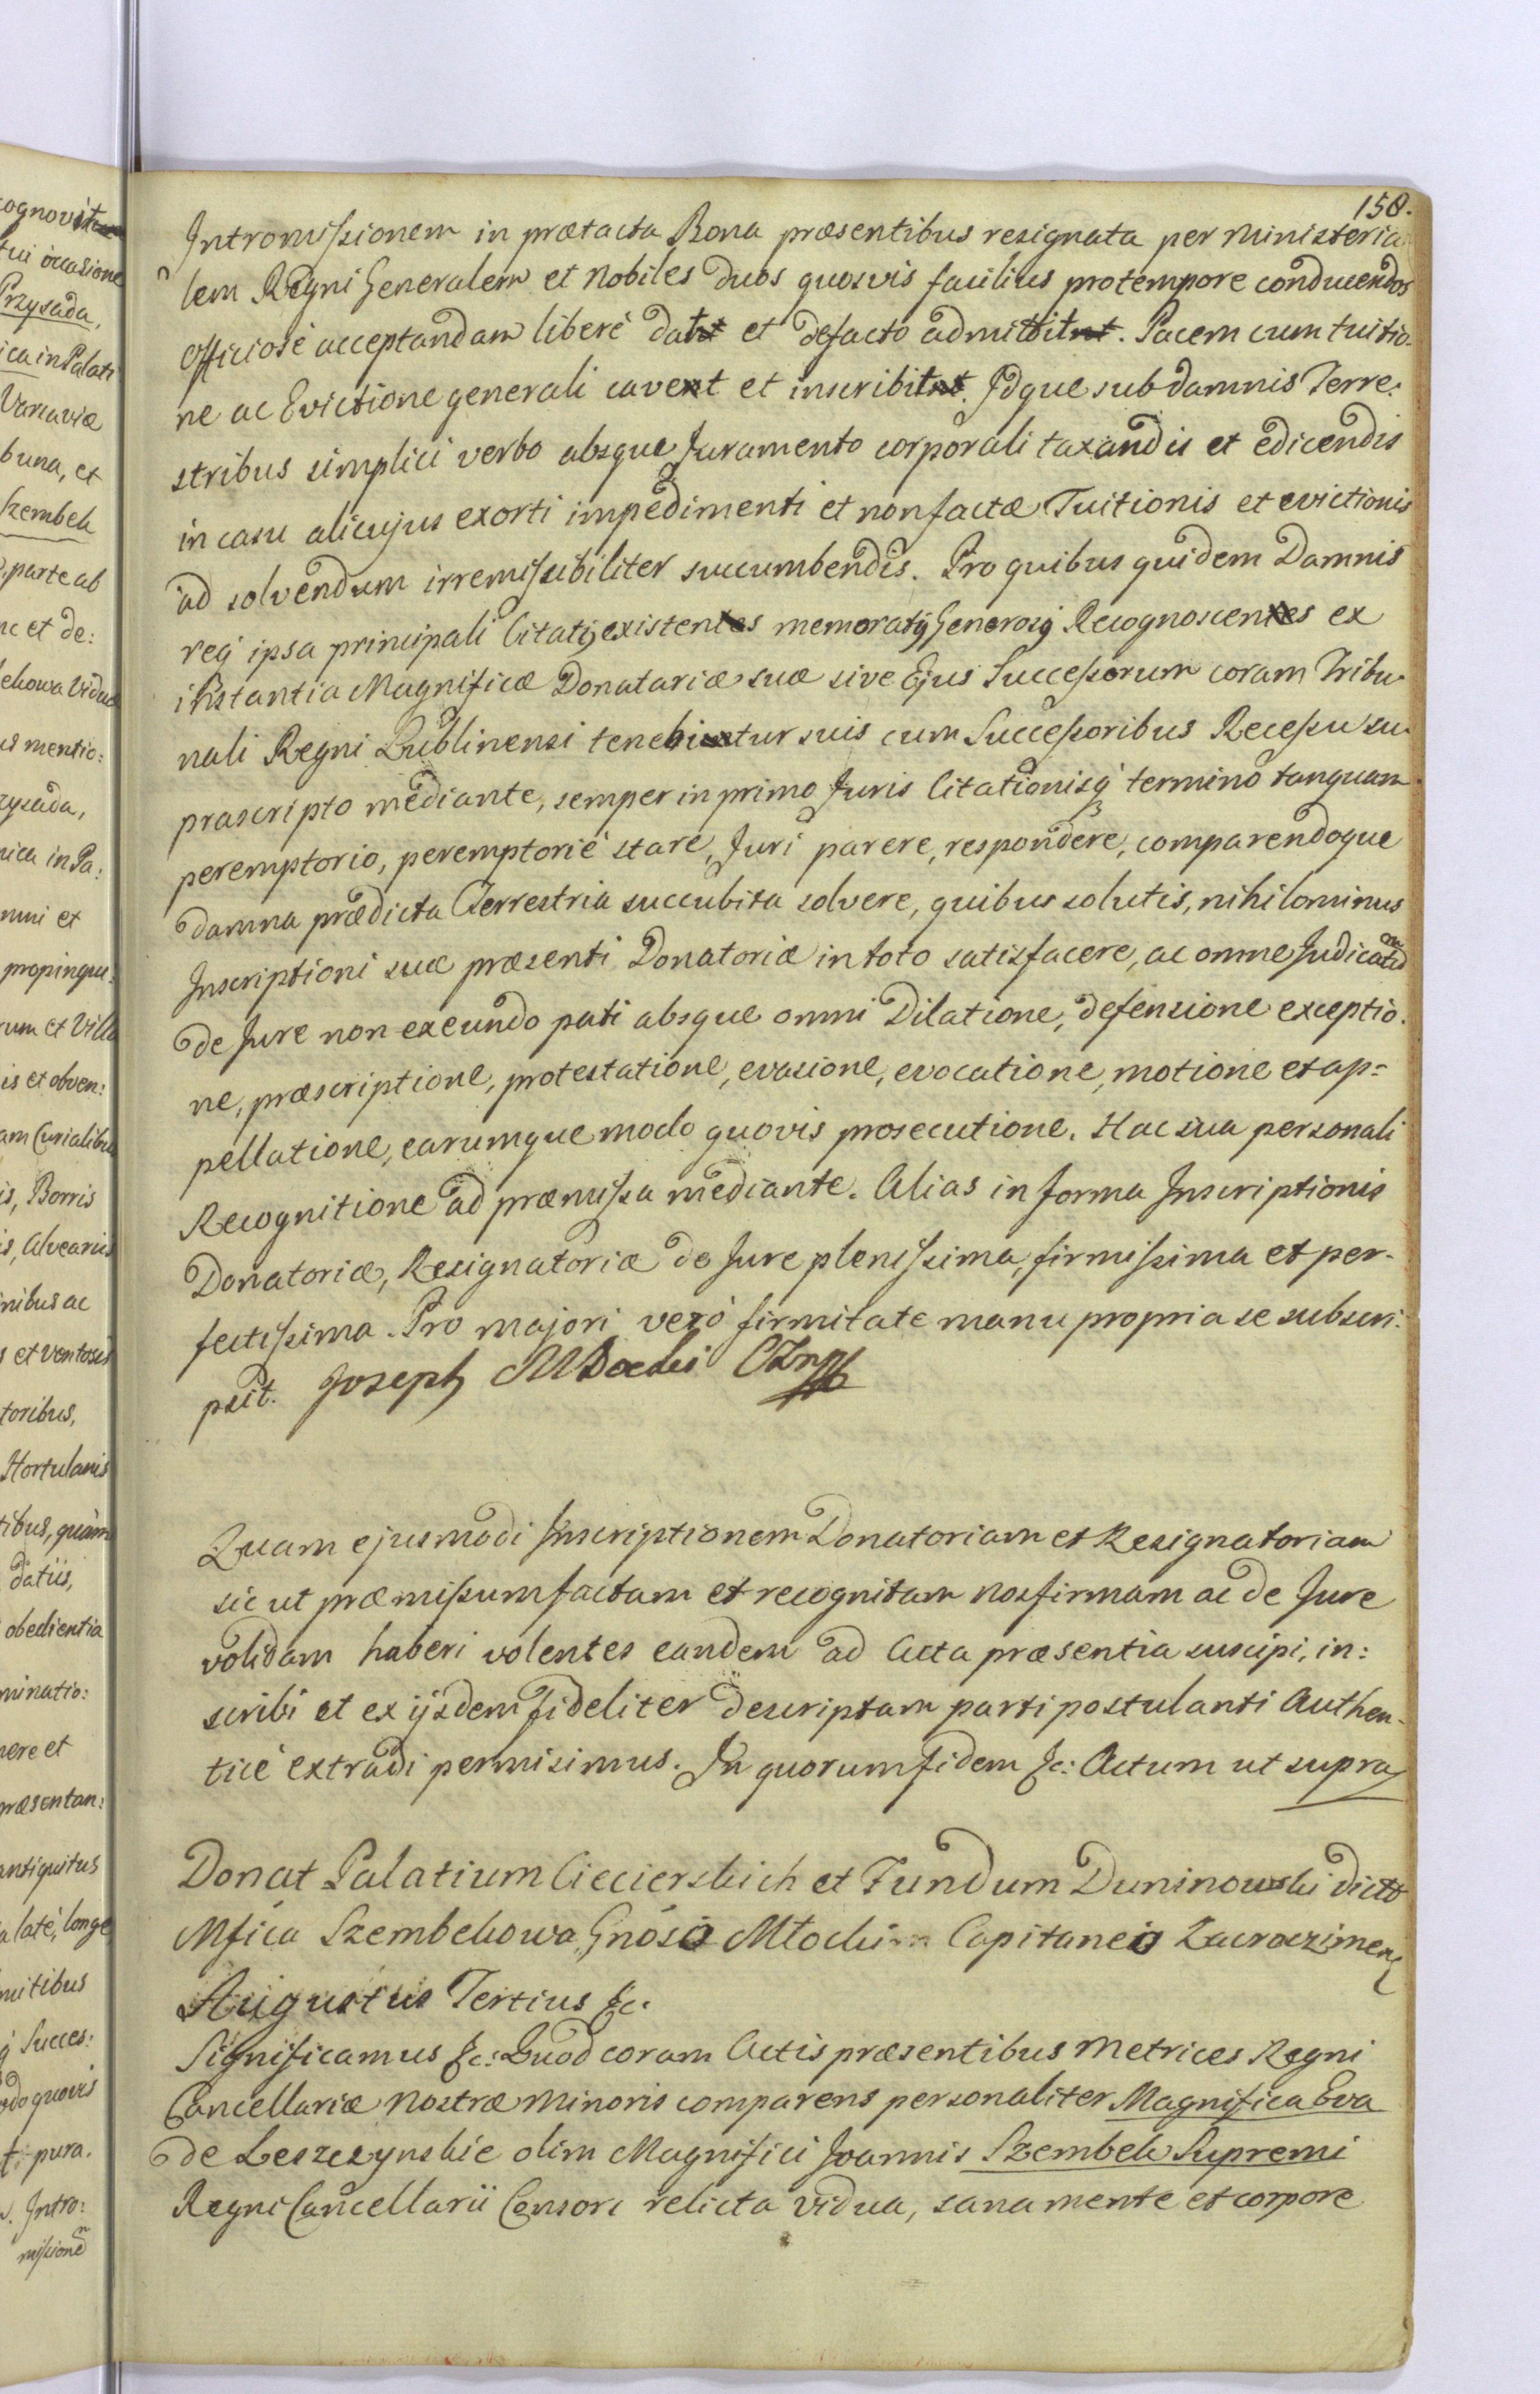 158.
Intromissionem in prætacta Bona præsentibus resignata per Ministeria
lem Regni Generalem et Nobiles duos quosvis facilius protempore conducendos
officiosè acceptandam liberè dat et defacto admittit. Pacem cum tuitio-
ne ac Evictione generali cavet et inscribit. Idque sub damnis Terre:
stribus simplici verbo absque Juramento corporali taxandis et edicendis
in casu alicujus exorti impedimenti et non factæ Tuitionis et evictionis
ad solvendum irremissibiliter succumbendis. Pro quibus quidem Damnis
req̃ ipsa principali Citatij existens memoratij Generosij Recognoscens ex
instantia Magnificæ Donatariæ suæ sive Ejus Successorum coram Tribu
nali Regni Lublinensi tenebitur suis cum Successoribus Recessu su
prascripto mediante, semper in primo Juris Citationisq́ termino tanquam
peremptorio, peremptoriè stare, Juri parere, respondere, comparendoque
damna prædicta Terrestria succubita solvere, quibus solutis, nihilominus
Inscriptioni suæ præsenti Donatoriæ in toto satisfacere, ac omne Judicatũ
de Jure non exeundo pati absque omni Dilatione, defensione exceptio-
ne, præscriptione, protestatione, evasione, evocatione, motione et ap=
pellatione, earumque modo quovis prosecutione. Hac sua personali
Recognitione ad præmissa mediante. Alias in forma Inscriptionis
Donatoriæ, Resignatoriæ de Jure plenissima, firmissima et per-
fectissima. Pro majori verò firmitate manu propria se subscri:
psit. Joseph Młocki
Quam ejusmodi Inscriptionem Donatoriam et Resignatoriam
sic ut præmissum factam et recognitam nos firmam ac de Jure
validam haberi volentes eandem ad Acta præsentia suscipi, in:
scribi et ex ijsdem fideliter descriptam parti postulanti Authen-
ticè extradi permisimus. In quorum fidem &c: Actum ut supra
Donat Palatium Ciecierskich et Fundum Duninowski dicto
Mfica Szembekowa Gnoso Młocki Capitaneo Zacroczimen
Augustus Tertius &c.
Significamus &c: Quod coram Actis præsentibus Metrices Regni
Cancellariæ Nostræ Minoris comparens personaliter Magnifica Eva
de Leszczynskie olim Magnifici Joannis Szembek Supremi
Regni Cancellarii Consors relicta vidua, sana mente et corpore